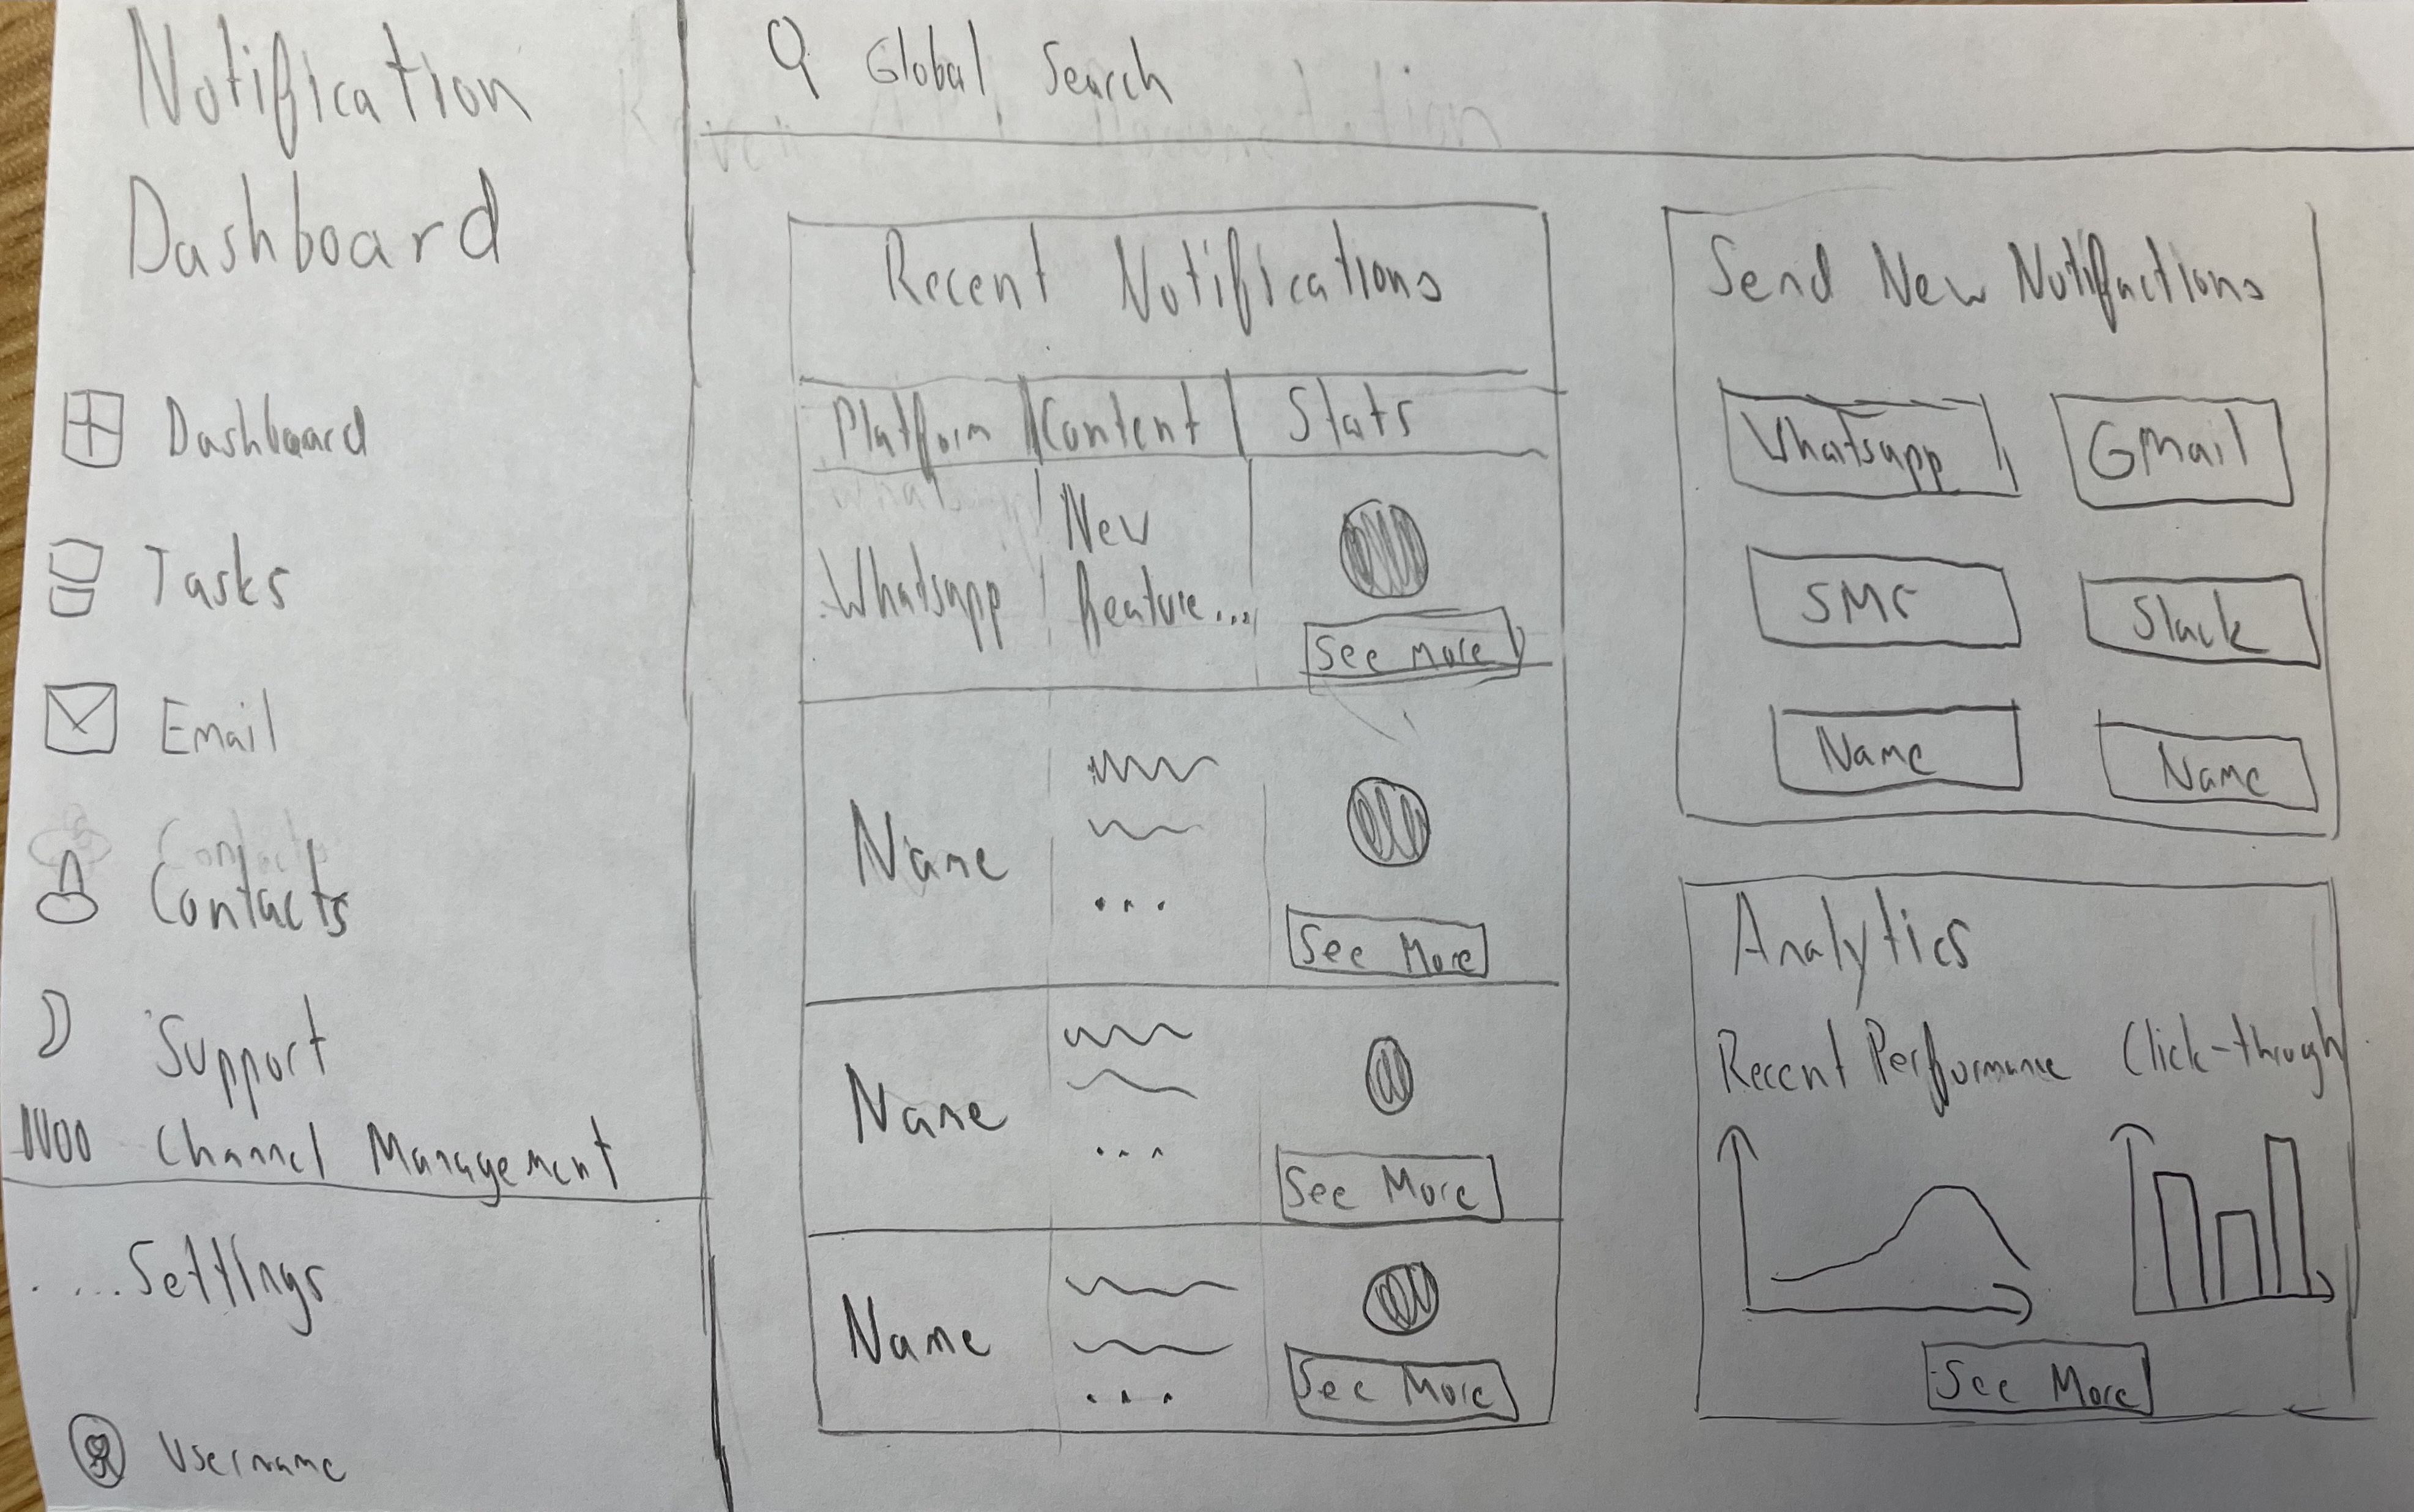 Notification
Dashboard
Dashboard
Tasks
Email
Contacts
Support
Channel Management
....Settings
Username
Global Search
Recent Notifications
Platform Content Stats
Whatsapp New
Feature...
See More
Name
...
See More
Name
...
See More
Name
...
See More
Send New Notifactions
Whatsapp GMail
SMS Slack
Name Name
Analytics
Recent Performance Click-through
See More